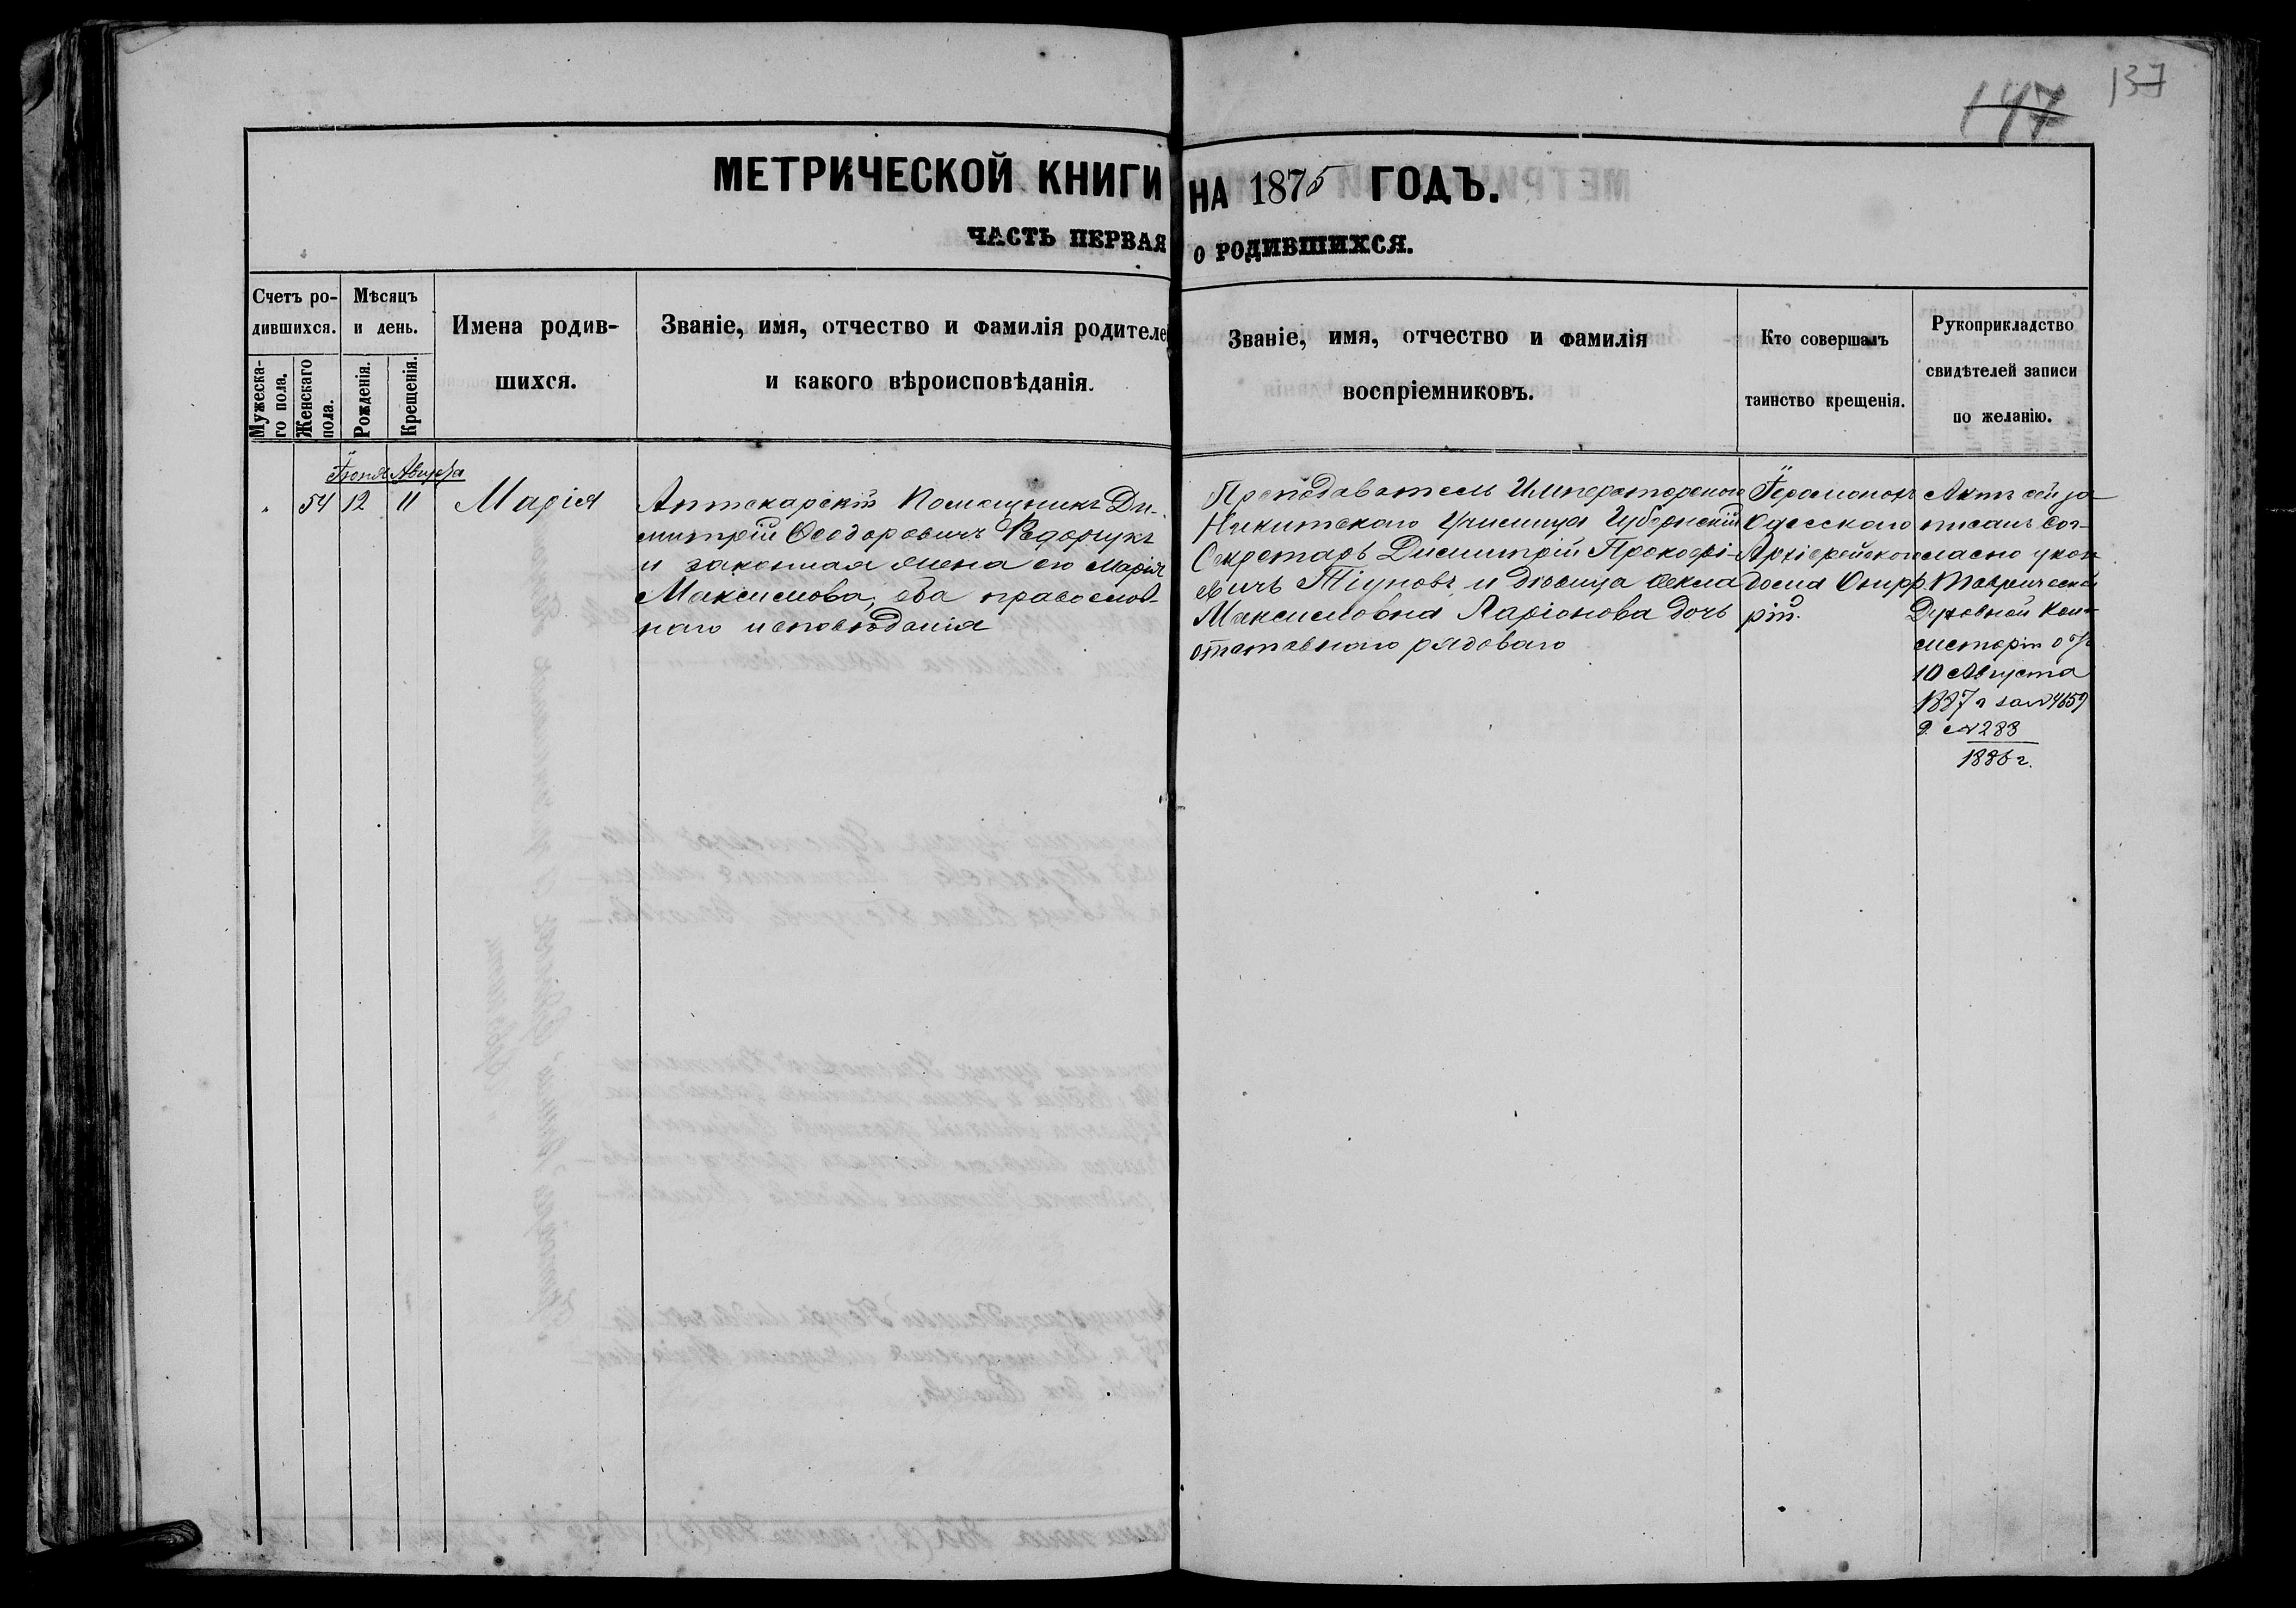 147 137
МЕТРИЧЕСКОЙ КНИГИ НА 1875 ГОДЪ.
ЧАСТЬ ПЕРВАЯ О РОДИВШИХСЯ.
Счетъ ро-
дившихся.
Мужеска-
го пола.
Женскаго
пола.
Мѣсяцъ
и день.
Рожденія.
Крещенія.
Имена родив-
шихся.
Званіе, имя, отчество и фамилія родителе
и какого вѣроисповѣданія.
Званіе, имя, отчество и фамилія
воспріемниковъ.
Кто совершалъ
таинство крещенія.
Рукоприкладство
свидѣтелей записи
по желанію.
Іюня Августа
54 12 11 Марія
Аптекарскій Помощникъ Ди-
митрій Ѳеодоровичъ Федорчукъ
и законная жена его Марія
Максимова, оба православ-
наго исповѣданія
Преподаватель Императорскаго
Никитскаго Училища Губернскій
Секретарь Димитрій Прокофі-
евичъ Тіуновъ, и дѣвица Ѳекла
Максимовна Ларіонова дочь
отставнаго рядоваго
Іеромонахъ
Одесскаго
Архіерейскаго
дома Онуф-
рій.
Актъ сей за-
писанъ сог-
ласно указа
Таврической
Духовной Кон-
систоріи отъ
10 Августа
1887 г за № 4659
д. № 288
1886 г.